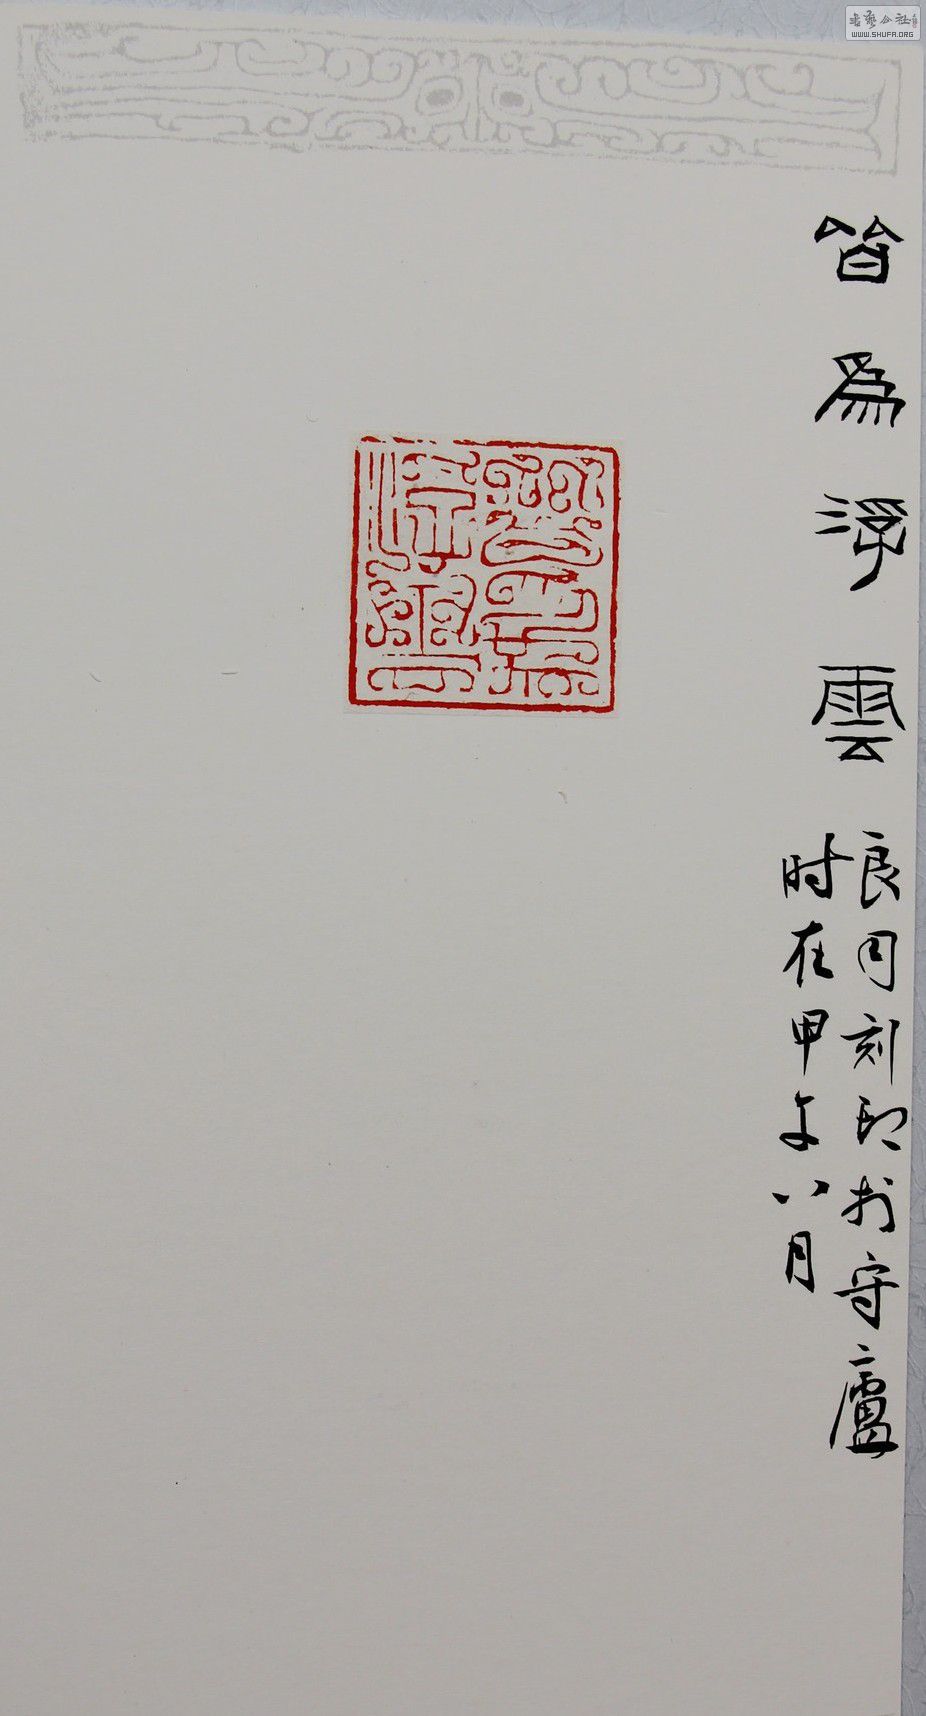 書藝公社
WWW.SHUFA.ORG
皆為浮雲
良同刻印扵守廬
时在甲午八月
皆為浮雲